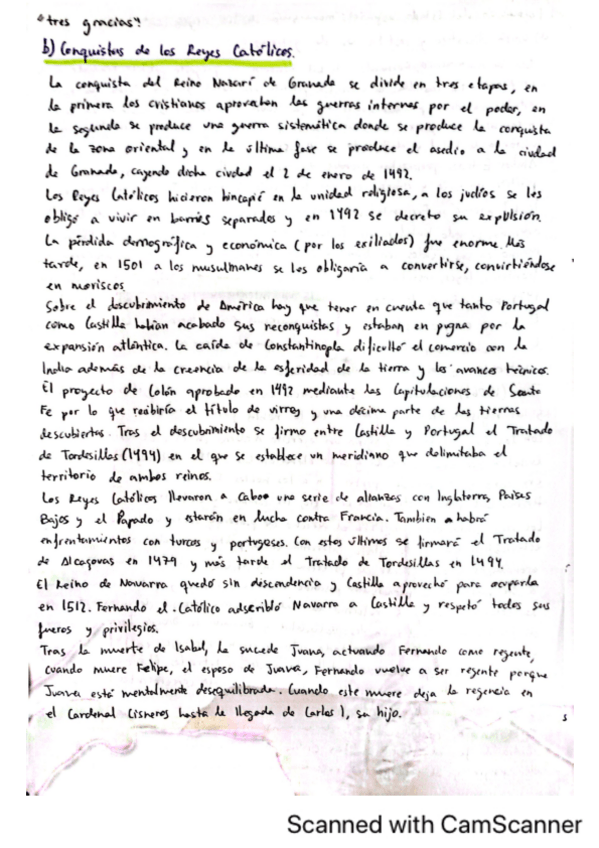 "tres gracias".
b) Conquistas de los Reyes Católicos.
La conquista del Reino Nazarí de Granada se divide en tres etapas, en
la primera los cristianos aprovechan las guerras internas por el poder, en
la segunda se produce una guerra sistemática donde se produce la conquista
de la zona oriental y en la última fase se produce el asedio a la ciudad
de Granada, cayendo dicha ciudad el 2 de enero de 1492.
Los Reyes Católicos hicieron hincapié en la unidad religiosa, a los judíos se les
obligó a vivir en barrios separados y en 1492 se decretó su expulsión.
La pérdida demográfica y económica (por los exiliados) fue enorme. Más
tarde, en 1501 a los musulmanes se les obligaría a convertirse, convirtiéndose
en moriscos.
Sobre el descubrimiento de América hay que tener en cuenta que tanto Portugal
como Castilla habían acabado sus reconquistas y estaban en pugna por la
expansión atlántica. La caída de Constantinopla dificultó el comercio con la
India además de la creencia de la esfericidad de la tierra y los avances técnicos.
El proyecto de Colón aprobado en 1492 mediante las Capitulaciones de Santa
Fe por lo que recibiría el título de virrey y una décima parte de las tierras
descubiertas. Tras el descubrimiento se firmo entre Castilla y Portugal el Tratado
de Tordesillas (1494) en el que se establece un meridiano que delimitaba el
territorio de ambos reinos.
Los Reyes Católicos llevaron a Caboo una serie de alianzas con Inglaterra, Países
Bajos y el Papado y estarán en lucha contra Francia. Tambien habrá
enfrentamientos con turcos y portugeses. Con estos últimos se firmará el Tratado
de Alcaçovas en 1479 y más tarde el Tratado de Tordesillas en 1494.
El Reino de Navarra quedó sin descendencia y Castilla aprovechó para ocuparla
en 1512. Fernando el Católico adscribió Navarra a Castilla y respetó todos sus
fueros y privilegios.
Tras la muerte de Isabel, la sucede Juana, actuando Fernando como regente,
cuando muere Felipe, el esposo de Juava, Fernando vuelve a ser regente porque
Juava está mentalmente desequilibrada. Cuando este muere deja la regencia en
el Cardenal Cisneros hasta la llegada de Carlos I, su hijo.
Scanned with CamScanner